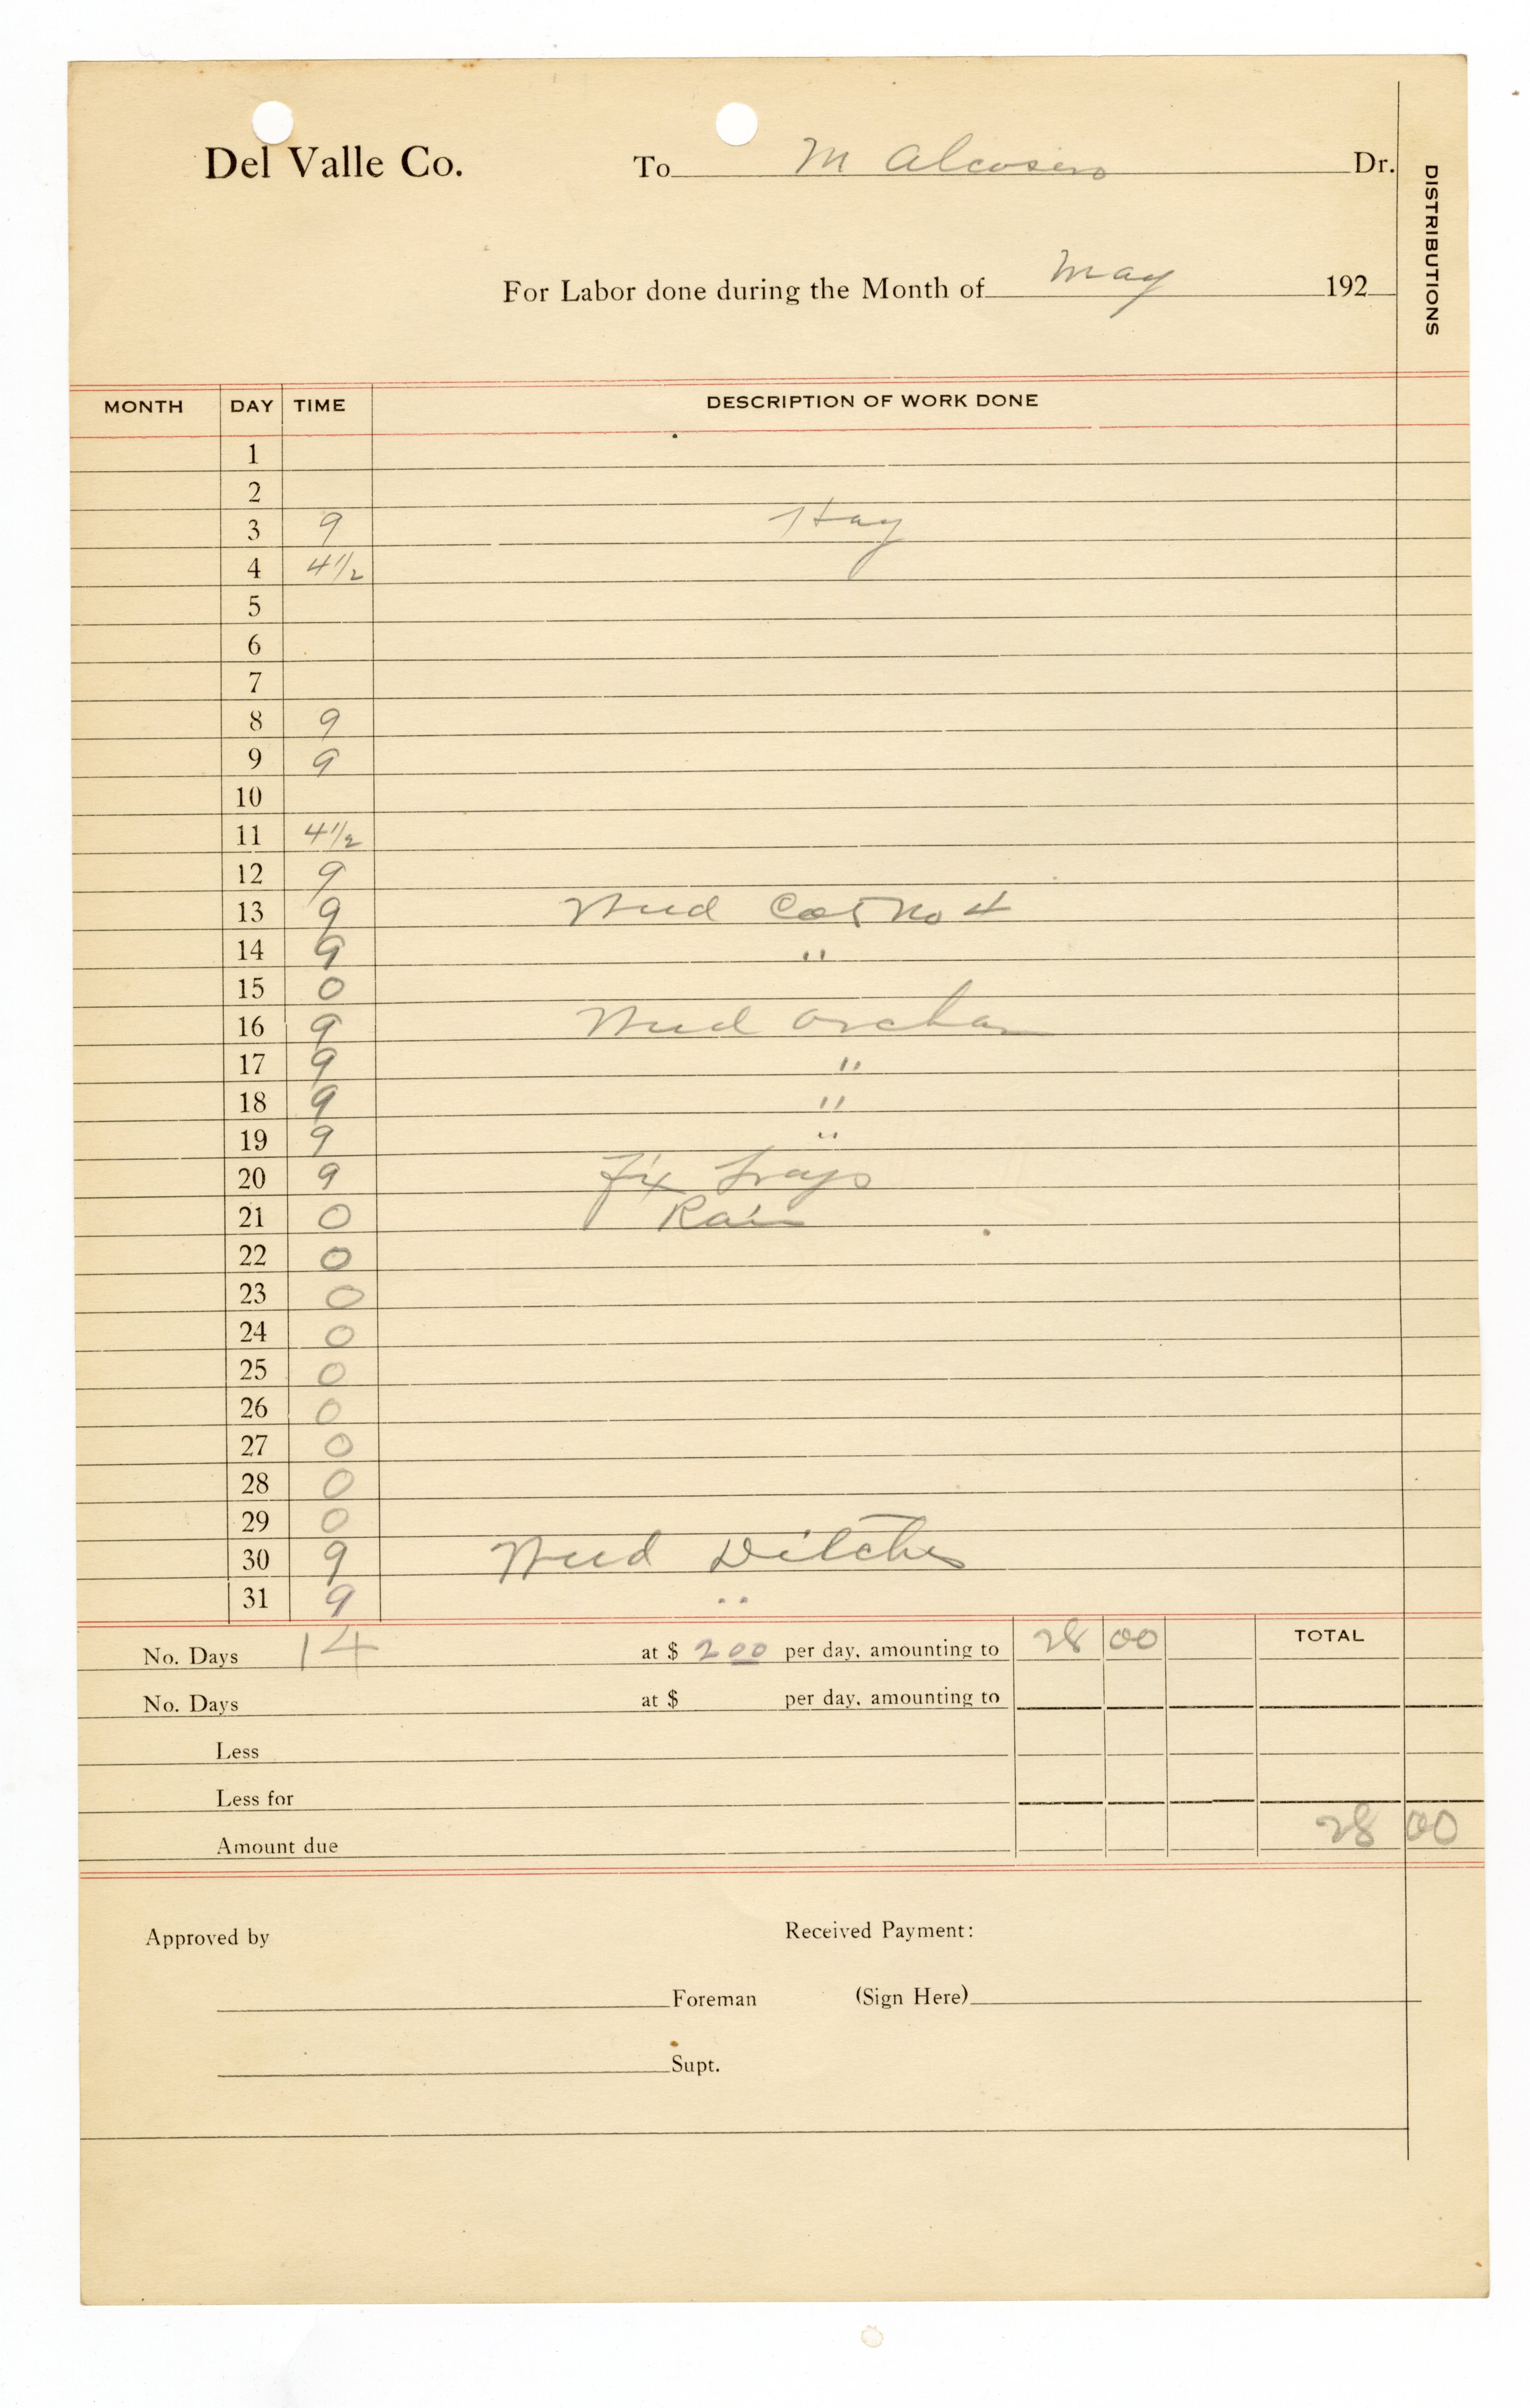 Del Valle Co. To M Alcosero Dr.
DISTRIBUTIONS
For Labor done during the Month of May 192
MONTH DAY TIME DESCRIPTION OF WORK DONE
1
2
3 9 Hay
4 4 1/2
5
6
7
8 9
9 9
10
11 4 1/2
12 9
13 9 Weed No 4
14 9 "
15 0
16 9 Weed Orchar
17 9 "
18 9 "
19 9 "
20 9 Fix Trays
21 0 Rain
22 0
23 0
24 0
25 0
26 0
27 0
28 0
29 0
30 9 Weed Ditches
31 9 "
No. Days 14 at $ 2 00 per day, amounting to 28 00 TOTAL
No. Days at $ per day, amounting to
Less
Less for
Amount due 28 00
Approved by Received Payment:
Foreman (Sign Here)
Supt.